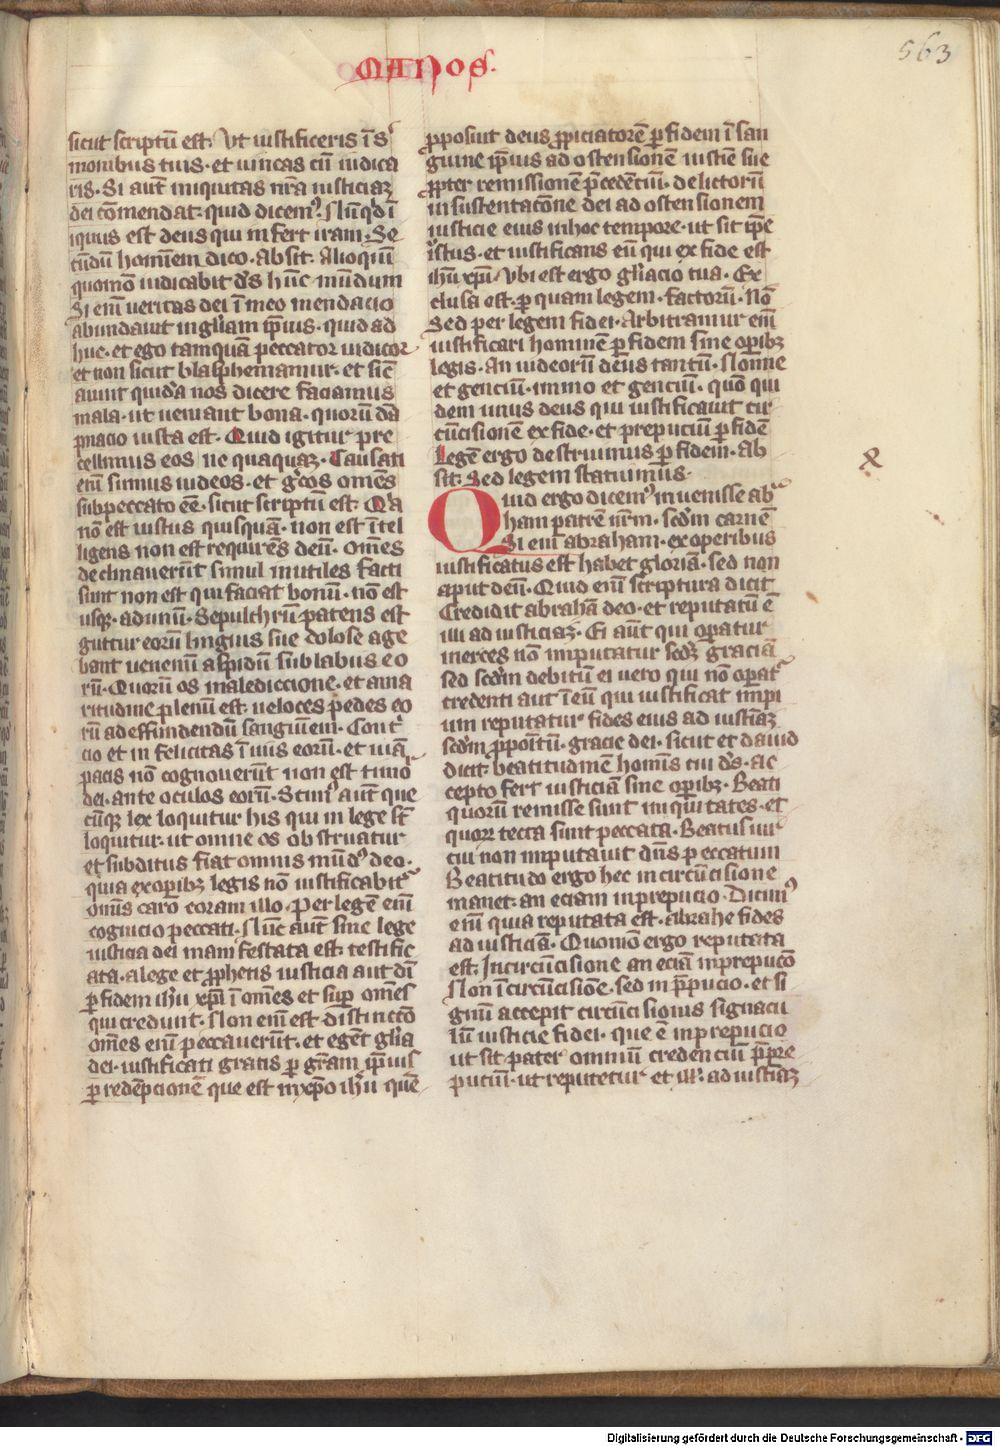 563
MANOS.
sicut scriptū est. Vt iustificeris ī s̾
monibus tuis. et uincas cū iudica
ris. Si aut̄ iniquitas nr̄a iusticiaꝫ
dei cōmendat. quid dicem⁹. Nūqͥd ī
iquus est deus qui infert iram. Se
cūdū hominem dico. absit. Alioquī
quomō iudicabit dʼs hūc mūdum
Si em̄ veritas dei ī meo mendacio
abundauit in glīam ip̄ius. quid ad
huc. et ego tamquā peccator iudicor
et non sicut blasphemamur. et sic̄
aiunt quidā nos dicere faciamus
mala. ut ueniant bona. quorū dā
pnacio iusta est. Quid igitur pre
cellimus eos ne quaquaꝫ. Causati
em̄ sumus iudeos. et gͤcos om̄es
sub peccato eē. sicut scriptū est. Qͥa
nō est iustus quisquā. non est ītel
ligens non est requirēs deū. Om̄es
declinauerūt simul inutiles facti
sunt non est qui faciat bonū. nō est
usqꝫ ad unū. Sepulchrū patens est
guttur eorū linguis sue dolose age
bant uenenū aspidū sub labiis eo
rū. Quorū os malediccione. et ama
ritudine plenū est. ueloces pedes eo
rū ad effundendū sanguinem. Contͥ
cio et infelicitas ī uiis eorū. et uiā
pacis nō cognouerūt non est timor
dei. ante oculos eorū. Scim⁹ aut̄ que
cūqꝫ lex loquitur his qui in lege st̄
loquitur. ut omne os obstruatur
et subditus fiat omnis mūd⁹ deo.
quia ex oꝑibꝫ legis nō iustificabit᷑
om̄is caro coram illo. Per legē em̄
cognicio peccati. Nūc aut̄ sine lege
iusticia dei manifestata est. testific
ata. a lege et ꝓphetis iusticia aut dī
ꝑ fidem ihū xp̄i ī om̄es et suꝑ om̄es
qui credunt. Non em̄ est distinctō
om̄es em̄ peccauerūt. et egēt glīa
dei. iustificati gratis ꝑ grām ip̄ius
ꝑ redēpcionē que est in xp̄o ihū quē
ꝓposuit deus ꝓpiciatorē ꝑ fidem ī san
guine ip̄ius ad ostensionē iustiē sue
ꝓpter remissionē p̄cedētiū. delictorū
in sustentacōne dei ad ostensionem
iusticie eius in hoc tempore. ut sit ip̄e
iustus. et iustificans eū qui ex fide est
ihū xp̄i. Vbi est ergo glīacio tua. Ex
clusa est. ꝑ quam legem. factorū. Nō
Sed per legem fidei. Arbitramur em̄
iustificari hominē ꝑ fidem sine oꝑibꝫ
legis. An iudeorū deus tantū. Nonne
et genciū. immo et genciū. quō qui
dem unus deus qui iustificauit cir
cūcisionē ex fide. et prepuciū ꝑ fidē
Legē ergo destruimus ꝑ fidem. Ab
sit. Sed legem statuimus.
Quid ergo dicem⁹ inuenisse ab̾
ham patrē nr̄m. scd̄m carnē
Si em̄ abraham. ex operibus
iustificatus est habet gloriā. sed non
aput deū. Quid em̄ scriptura dicit
Credidit abrahā deo. et reputatū ē
illi ad iusticiaꝫ. Ei aūt qui oꝑatur
merces nō imputatur scdꝫ graciā
sed scd̄m debitū ei uero qui nō oꝑat᷑
credenti aut ī eū qui iustificat impi
um reputatur fides eius ad iustiāꝫ
scd̄m ꝓpoītū. gracie dei. sicut et dauid
dicit. beatitudinē homīs cui dʼs. ac
cepto fert iusticiā sine oꝑibꝫ. Beati
quorū remisse sunt iniquitates. et
quoꝝ tecta sunt peccata. Beatus uir
cui non imputauit dn̄s peccatum
Beatitudo ergo hec in circūcisione
manet. an eciam in prepucio. Dicim⁹
em̄ quia reputata est. abrahe fides
ad iusticiā. Quomō ergo reputata
est. In circūcisione an eciā in prepucō
Non ī circūcisiōe. sed in p̄pucio. et si
gnū accepit circūcisionis signacu
lū iusticie fidei. que ē in prepucio
ut sit pater omniū credenciū ꝑ pre
puciū. ut reputetur et ill̓. ad iustiāꝫ
Digitalisierung gefördert durch die Deutsche Forschungsgemeinschaft - DFG